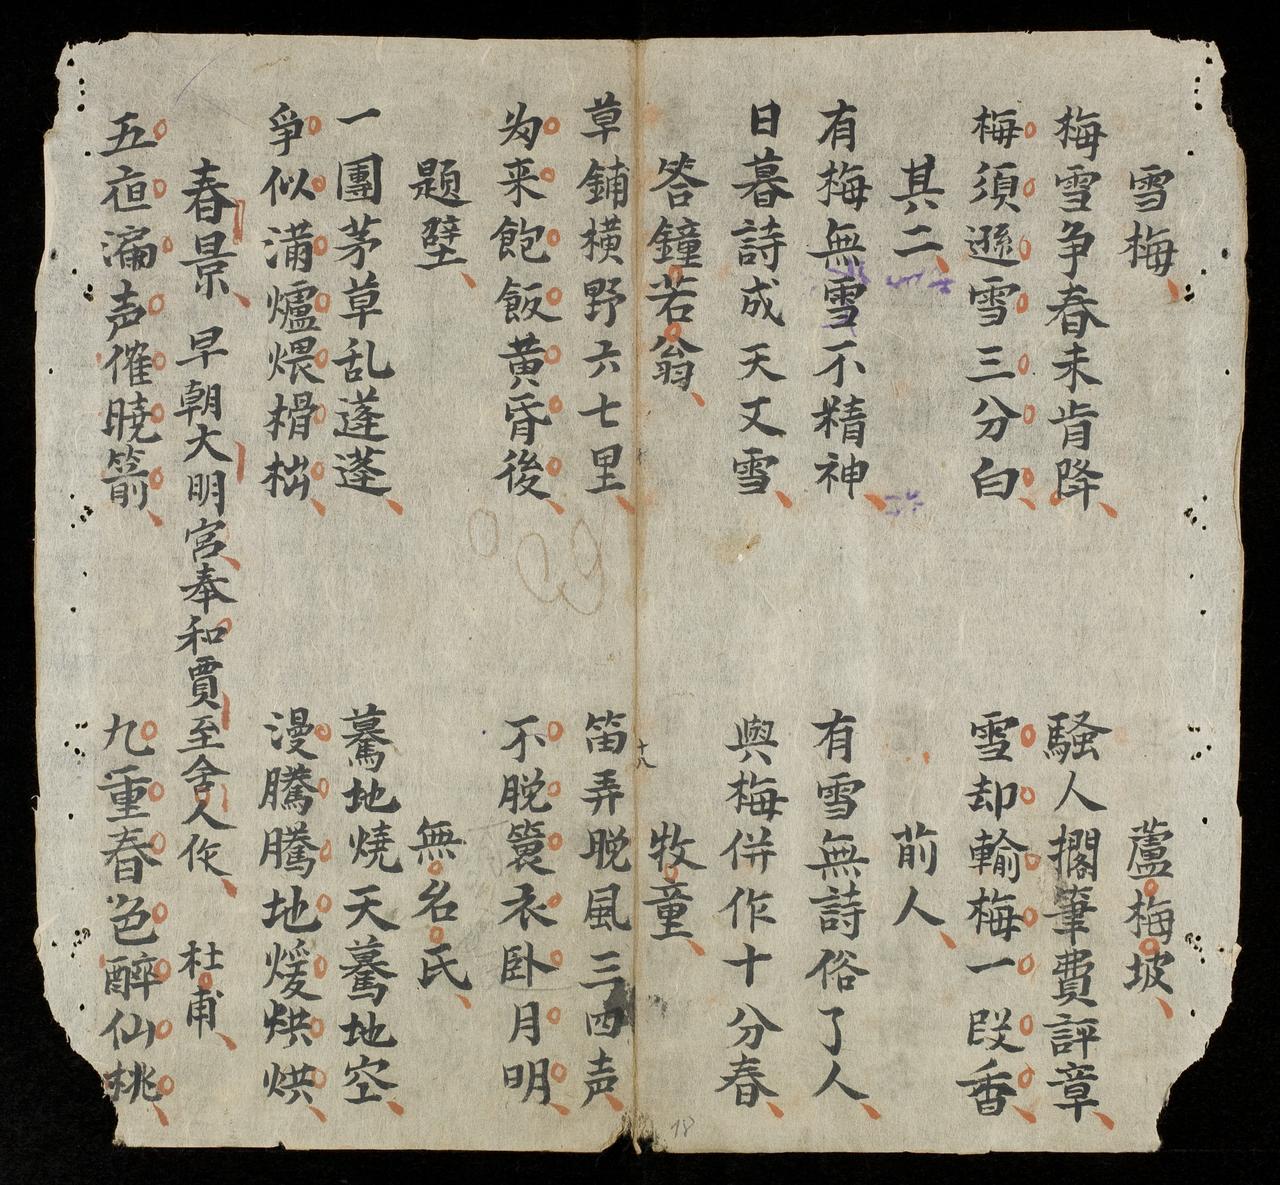 雪梅 蘆梅坡
梅雪争春未肯降 騷人擱筆費評章
梅須遜雪三分白 雪却輸梅一段香
其二 前人
有梅無雪不精神 有雪無詩俗了人
日暮詩成天又雪 與梅併作十分春
答鐘若翁 牧童
草鋪橫野六七里 笛弄晚風三四声
为来飽飯黄昏後 不脱簑衣卧月明
題壁 無名氏
一團茅草乱蓬蓬 驀地燒天驀地空
爭似滿爐煨榾柮 漫騰騰地煖烘烘
春景 早朝大明宮奉和賈至舍人作 杜甫
五夜漏声催曉箭 九重春色醉仙桃
十八
18